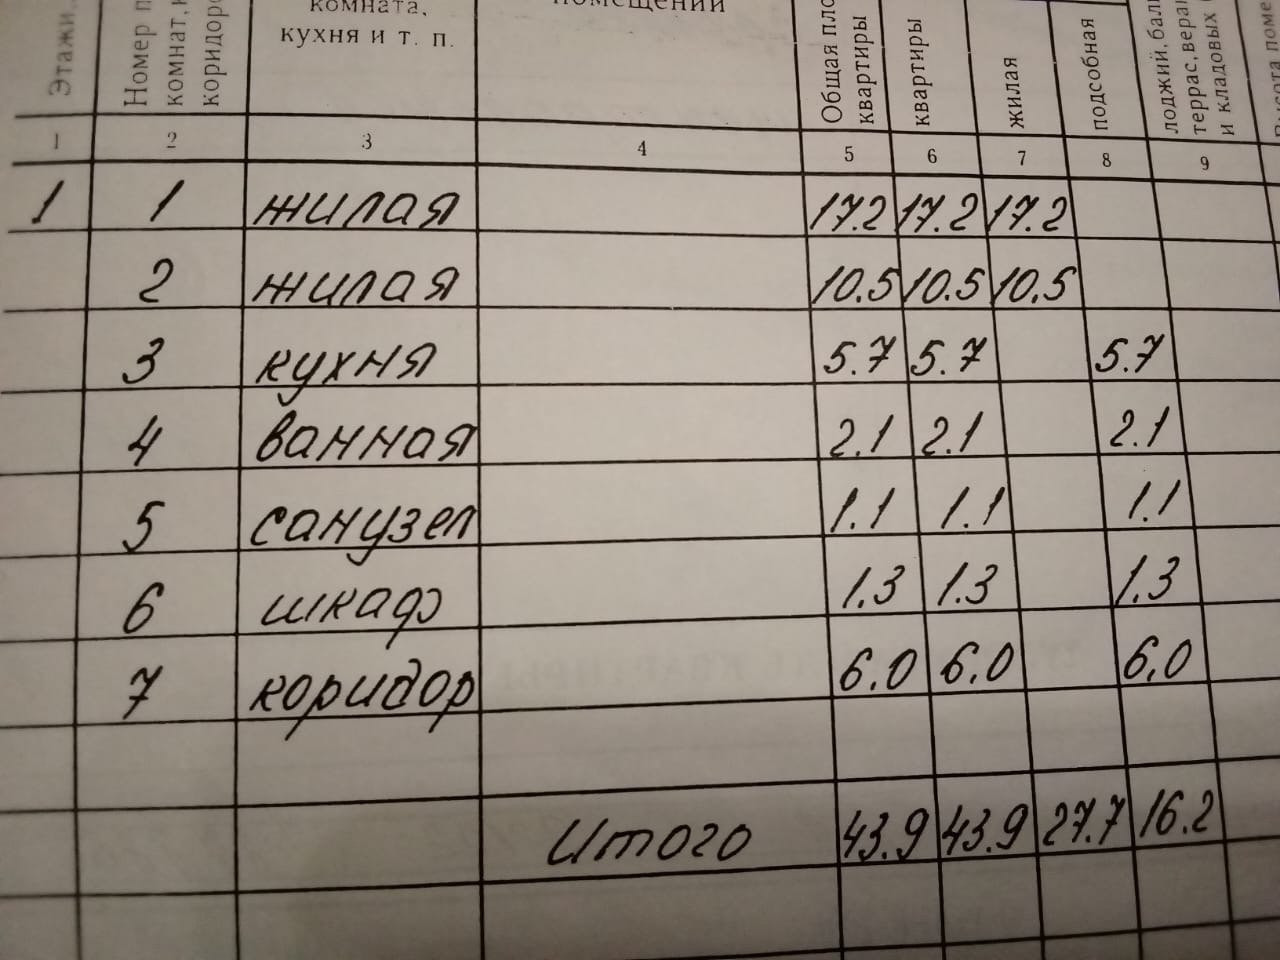 комната,
кухня и т. п.
помещений
Этажи
Номер
комнат,
коридоро
Общая пло
квартиры
квартиры
жилая
подсобная
лоджий, бал
террас, вера
и кладовых
та поме
1 2 3 4 5 6 7 8 9
1 1 жилая 17.2 17.2 17.2
2 жилая 10.5 10.5 10.5
3 кухня 5.7 5.7 5.7
4 ванная 2.1 2.1 2.1
5 санузел 1.1 1.1 1.1
6 шкаф 1.3 1.3 1.3
7 коридор 6.0 6.0 6.0
Итого 43.9 43.9 27.7 16.2